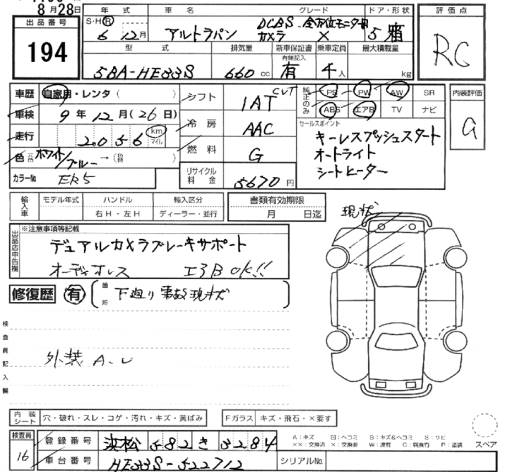 8月28日
出品番号 194
年式 S・H・R 6年12月
車名 アルトラパン
グレード DCBS 全方位モニター用カメラ X
ドア・形状 5 箱
型式 5BA-HE33S
排気量 660 cc
前車検証書 内保記入 有
乗車定員 4人
最大積載量 kg
評価点 RC
車歴 自家用・レンタ( )
車検 9年12月(26日)
走行 2056 km マイル
色 ホワイト/ブルー→( )
カラーNo ER5
シフト 1AT CVT
冷房 AAC
燃料 G
リサイクル料金 5670円
PS PW AW SR
ABS エアB TV ナビ
内装評価 G
セールスポイント
キーレスプッシュスタート
オートライト
シートヒーター
輸入車 モデル年式 ハンドル 右H・左H 輸入区分 ディーラー・並行
書類有効期限 月 日迄
現状
※注意事項等記載
出品店申告欄
デュアルカメラブレーキサポート
オーディオレス エアB OK!!
修復歴 有 箇所 下廻り事故現状
検査員記入欄
外装 A-U
内装シート 穴・破れ・スレ・コゲ・汚れ・キズ・黄ばみ
Fガラス キズ・飛石・×要す
A:キズ U:ヘコミ B:キズ&ヘコミ S:サビ
スペア
検査員 16
登録番号 浜松 582 き 3284
車台番号 HE33S-522712
シリアルNo.